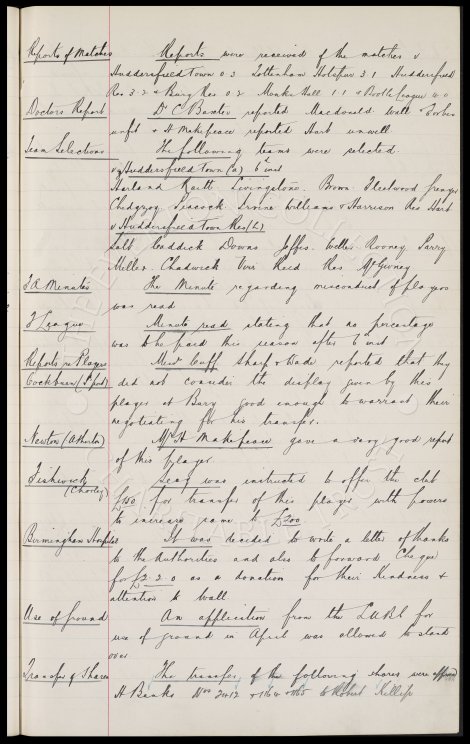 Reports of Matches Reports were received of the matches v
Huddersfield Town 0.3 Tottenham Hotspur 3.1 Huddersfield
Res 3.2 & Bury Res 0.2 Monks Hall 1.1 & Bootle League 4.0
Doctors Report Dr C Baxter reported Macdonald Wall & Forbes
unfit & H Makepeace reported Hart unwell
Team Selections The following teams were selected
v Huddersfield Town (a) 6th inst
Harland Raitt Livingstone. Brown Fleetwood
Chedgzoy Peacock Irvine Williams & Harrison Res Hart
v Huddersfield Town Res (H)
Salt Caddick Downs Jeffs Weller Rooney Parry
Miller. Chadwick Virr Reid Res. McGivney
F A Minutes The Minute regarding misconduct of players
was read
F League Minute read stating that no percentage
was to be paid this season after 6th inst
Reports re Players Messrs Cuff Sharp & Wade reported that they
Cockburn (S'port) did not consider the display given by this
player at Bury good enough to warrant their
negotiating for his transfer.
Newton (Atherton) Mr H Makepeace gave a very good report
of this player
Fishwick Secy was instructed to offer the club
(Chorley) £150 for transfer of this player with powers
to increase same to £200
Birmingham Hospital It was decided to write a letter of thanks
to the Authorities and also to forward Cheque
for £2 2 0 as a donation for their Kindness &
attention to Wall
Use of ground An application from the for
use of ground in April was allowed to stand
over
Transfer of Shares The transfer of the following shares were approved
H Banks Nos 2412 & 1164 & 1165 to Robert